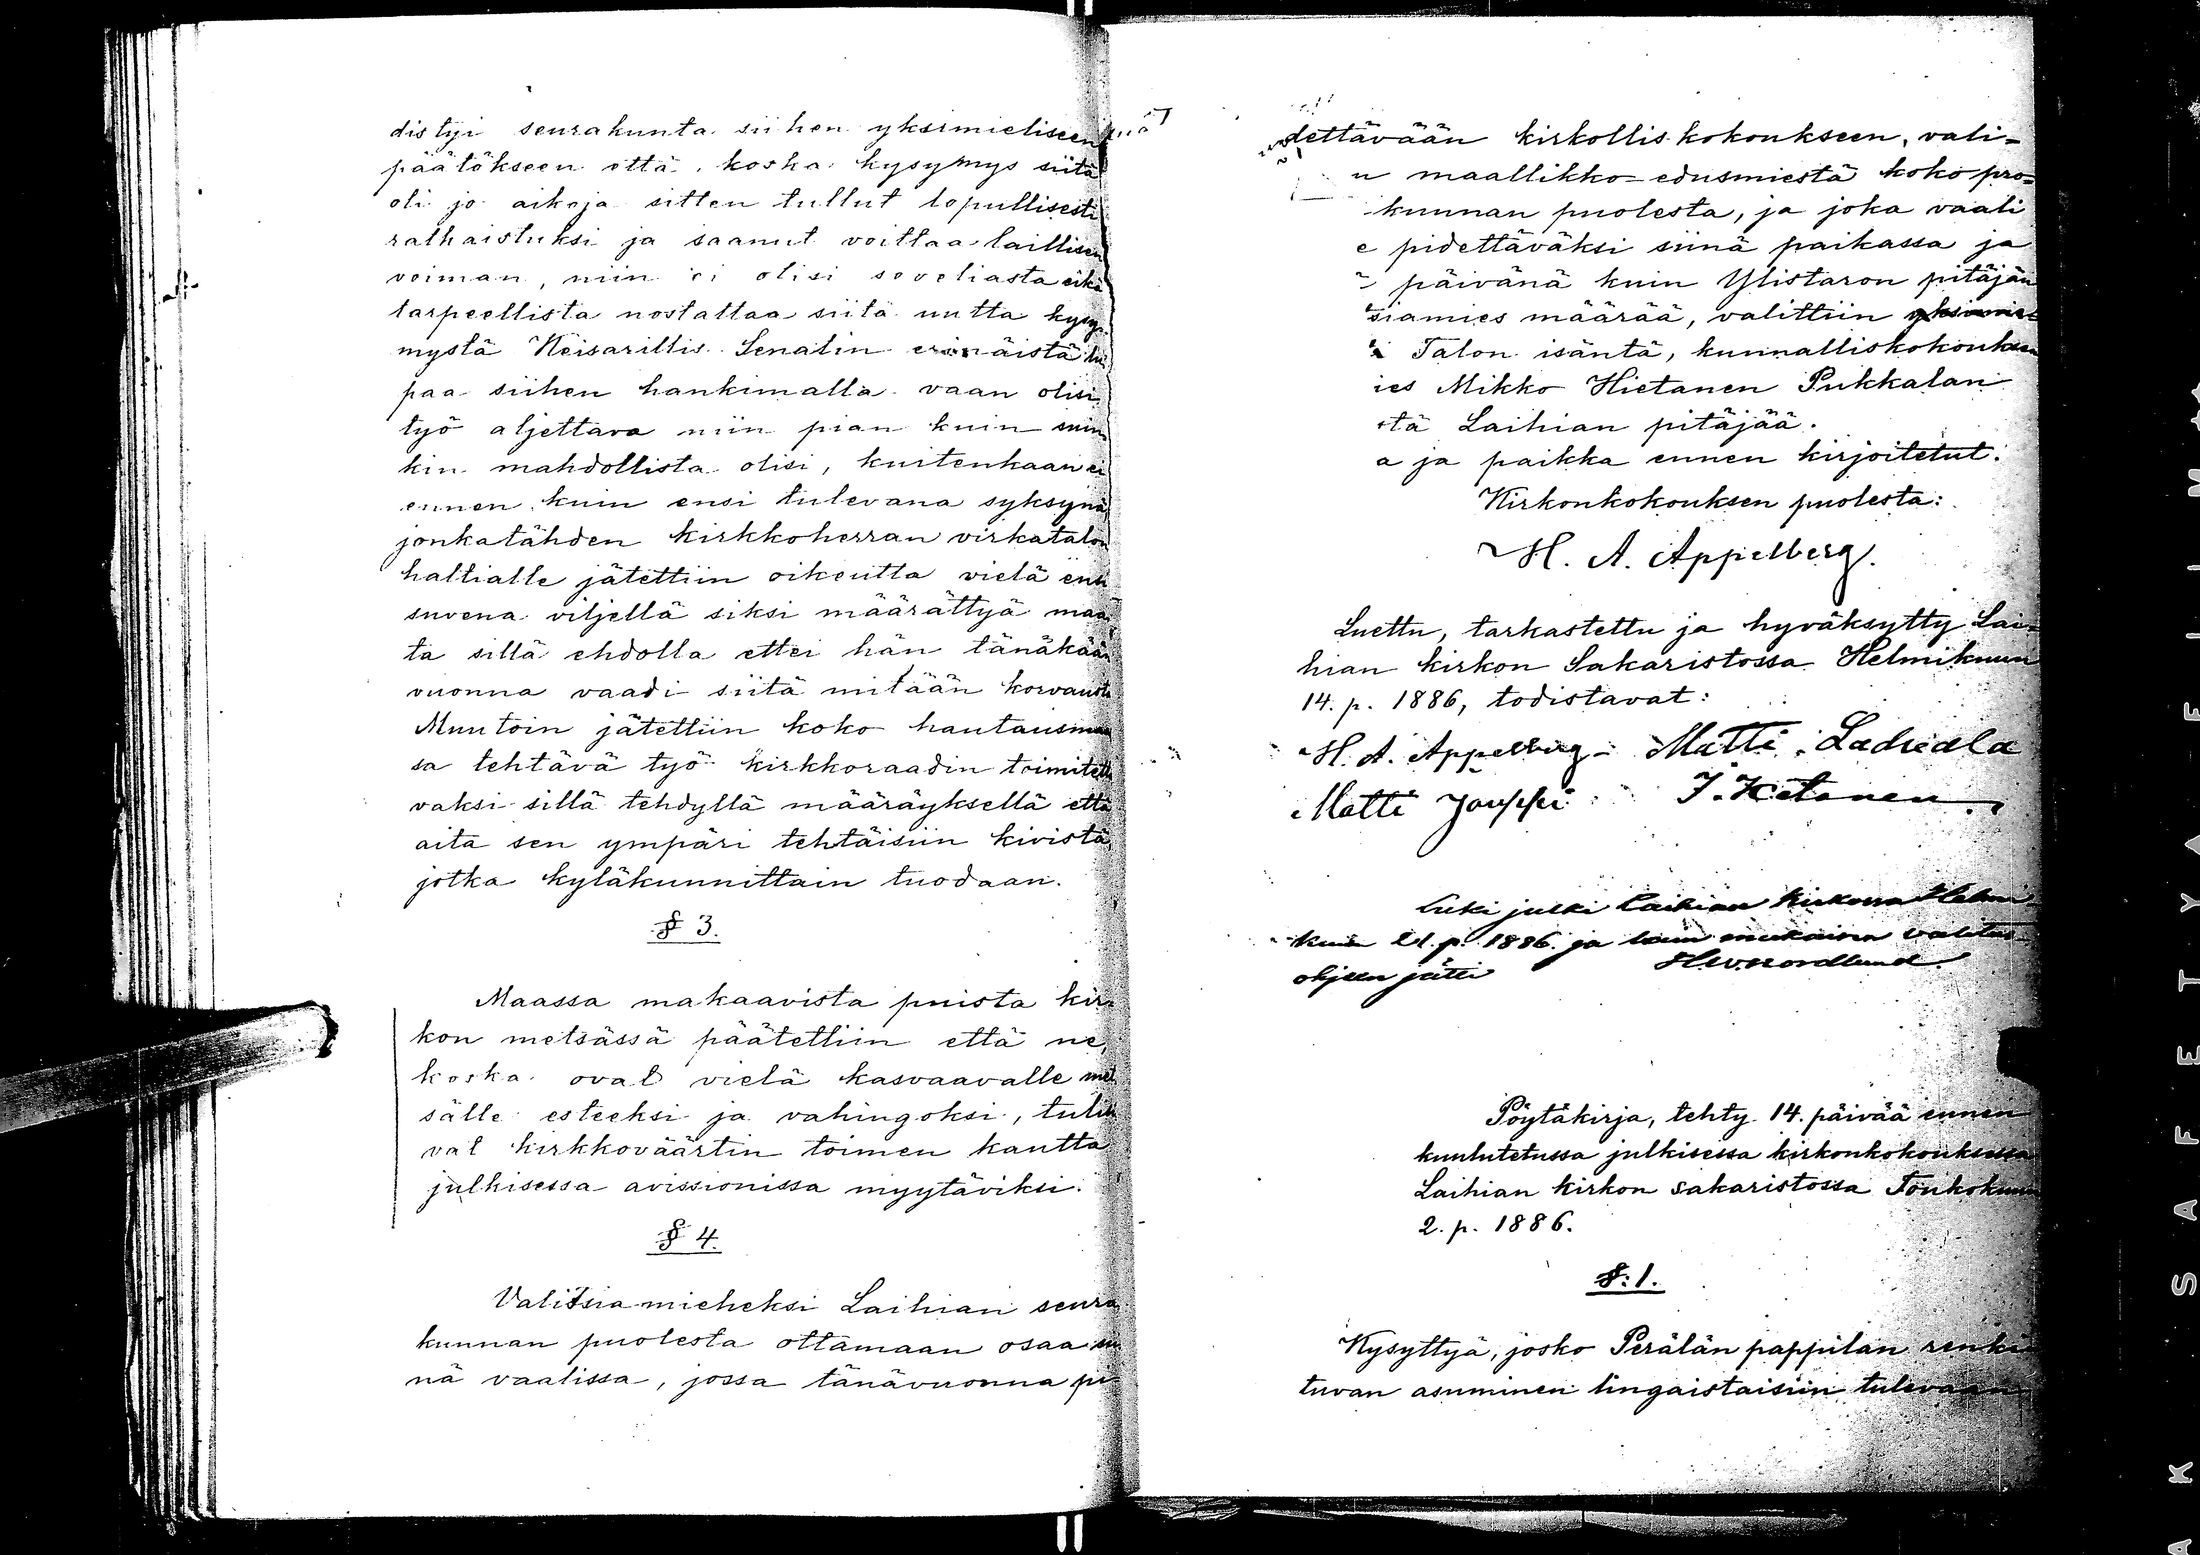 distyi seurakunta siihen yksimieliseen
päätökseen että, koska kysymys siitä
oli jo aikoja sitten tullut lopullisesti
ratkaistuksi ja saanut voittaa laillisen
voiman, niin ei olisi soveliasta eikä
tarpeellista nostattaa siitä uutta kysy-
mystä Keisarillis. Senatin erinäistä lu
paa siihen hankimalla vaan olisi
työ aljettava niin pian kuin suin
kin mahdollista olisi, kuitenkaan ei
ennen kuin ensi tulevana syksynä
jonkatähden kirkkoherran virkatalon
haltialle jätettiin oikeutta vielä ensi
suvena viljellä siksi määrättyä maa
ta sillä ehdolla ettei hän tänäkään
vuonna vaadi siitä mitään korvausta
Muutoin jätettiin koko hautausmaa
sa tehtävä työ kirkkoraadin toimitetta
vaksi sillä tehdyllä määräyksellä että
aita sen ympäri tehtäisiin kivistä,
jotka kyläkunnittain tuodaan.
§ 3.
Maassa makaavista puista kir-
kon metsässä päätettiin että ne,
koska ovat vielä kasvaavalle met
sälle esteeksi ja vahingoksi, tulisi
vat kirkkoväärtin toimen kautta
julkisessa avissionissa myytäviksi.
§ 4.
Valitsiamieheksi Laihian seura
kunnan puolesta ottamaan osaa sii
nä vaalissa, jossa tänävuonna pi
dettävään kirkolliskokoukseen, vali-
n maallikko-edusmiestä koko pro-
kunnan puolesta, ja joka vaali
e pidettäväksi siinä paikassa ja
päivänä kuin Ylistaron pitäjän
siamies määrää, valittiin yksimie
i Talon isäntä, kunnalliskokouksen
ies Mikko Hietanen Pukkalan
stä Laihian pitäjää.
a ja paikka ennen kirjoitetut.
Kirkonkokouksen puolesta:
H. A. Appelberg.
Luettu, tarkastettu ja hyväksytty Lai-
hian kirkon Sakaristossa Helmikuun
14. p. 1886, todistavat:
H. A. Appelberg Matti Ladvala
Matti Jouppi J. Hietanen
Luki julki Laihian kirkossa Helmi-
kuun 21. p. 1886 ja lain mukaisen valitus-
ohjeen jätti H.W. Nordlund.
Pöytäkirja, tehty 14. päivää ennen
kuulutetussa julkisessa kirkonkokouksessa
Laihian kirkon sakaristossa Toukokuun
2. p. 1886.
§. 1.
Kysyttyä, josko Perälän pappilan renki
tuvan asuminen lingaistaisiin tulevaan